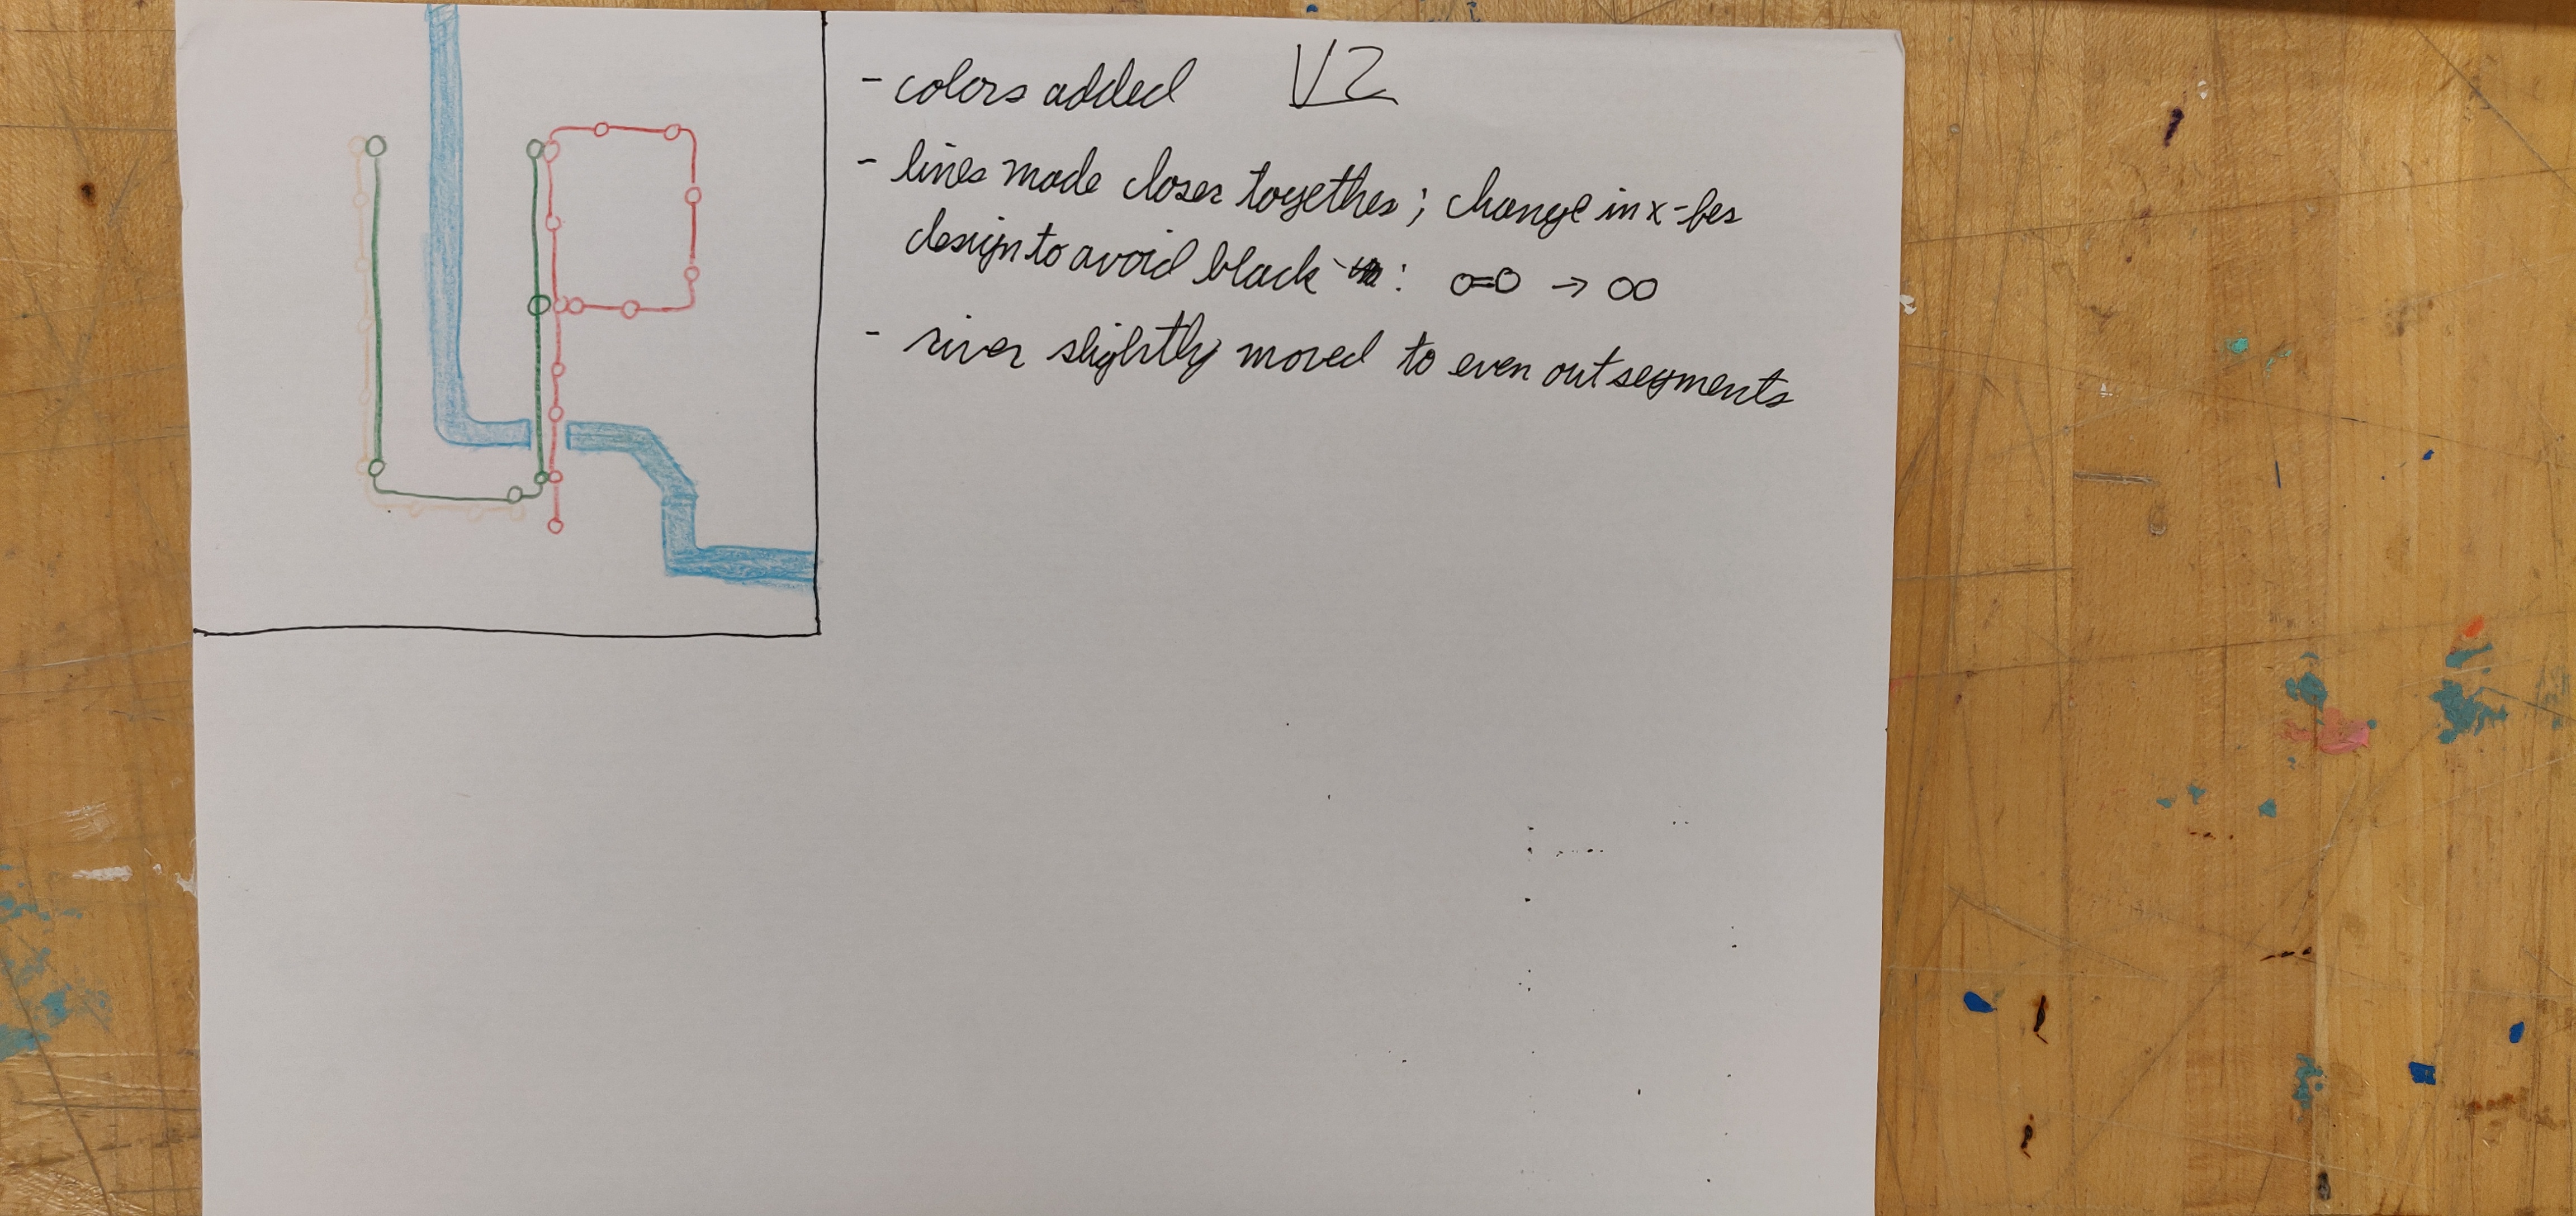 V2
- colors added
- lines made closer together; change in x-fer
design to avoid black : o=o → oo
- river slightly moved to even out segments